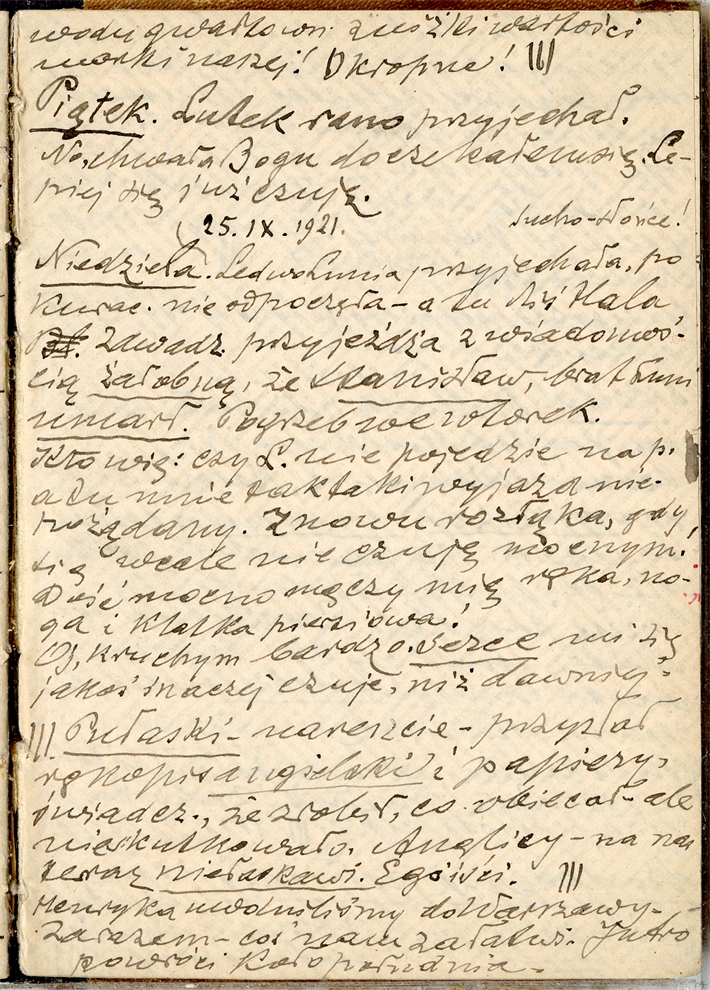 wodu gwałtown. zniżki wartości
marki naszej! Okropne! |||
Piątek. Lutek rano przyjechał.
No, chwała Bogu doczekałem się. Le-
piej się już czuję.
25.IX.1921. Sucho-słońce!
Niedziela. Ledwo Lunia przyjechała, po
kurac. nie odpoczęła – a tu dziś Hala
Zawadz. przyjeżdża z wiadomoś-
cią żałobną, że Stanisław, brat Luni
umarł. Pogrzeb we wtorek.
Kto wie: czy L. nie pojedzie na p.
a tu mnie tak taki wyjazd nie-
pożądany. Znowu rozłąka, gdy
się wcale nie czuję mocnym!
Dość mocno męczy mię ręka, no-
ga i klatka piersiowa!
Oj, kruchym bardzo. Serce mi się
jakoś inaczej czuje, niż dawniej.
||| Pułaski – nareszcie – przysłał
rękopis angielski i papiery,
świadcz., że zrobił, co obiecał – ale
nie skutkowało. Anglicy – na nas
teraz niełaskawi. Egoiści. |||
Henryka do Warszawy.
Zarazem – coś nam załatwi. Jutro
powróci koło południa.